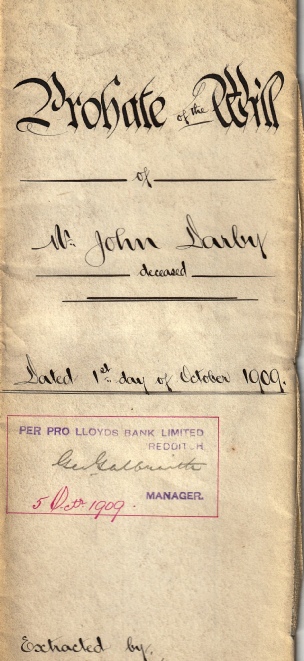 Probate of the Will
of
Mr. John Darby
deceased
Dated 1st day of October 1909.
PER PRO LLOYDS BANK LIMITED
REDDITCH.
Geo Galbraith
MANAGER.
5 Oct 1909.
Extracted by.